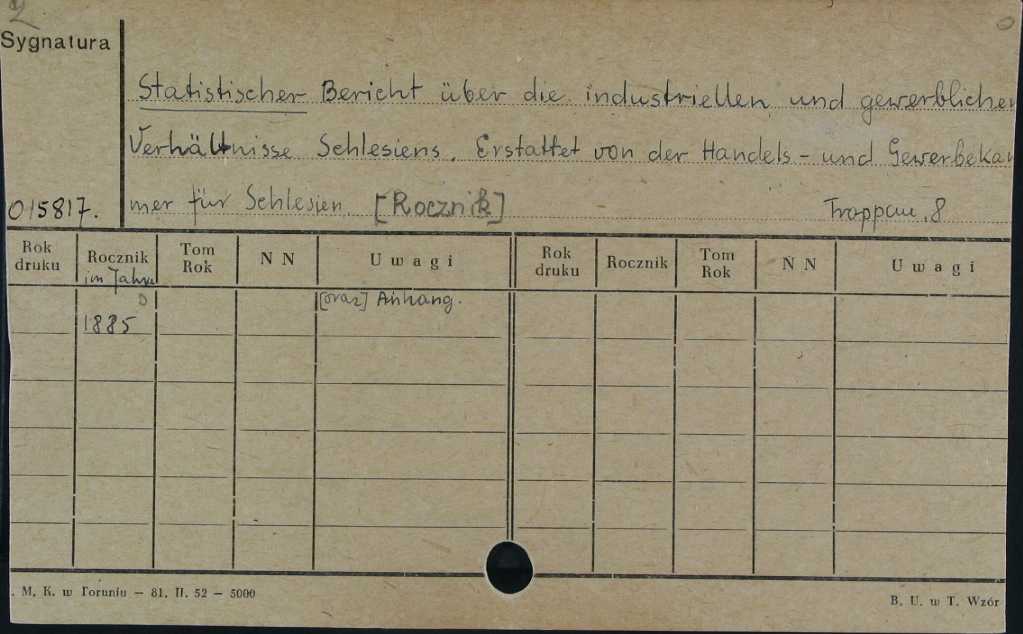 2
Sygnatura
Statistischer Bericht über die industriellen und gewerblichen
Verhältnisse Schlesiens. Erstattet von der Handels- und Gewerbekam
mer für Schlesien [Rocznik] Troppau, 8
015817.
Rok druku Rocznik Tom Rok N N Uwagi Rok druku Rocznik Tom Rok N N Uwagi
im Jahre
[oraz] Anhang.
1885
. M. K. w Toruniu – 81. II. 52 – 5000
B. U. w T. Wzór